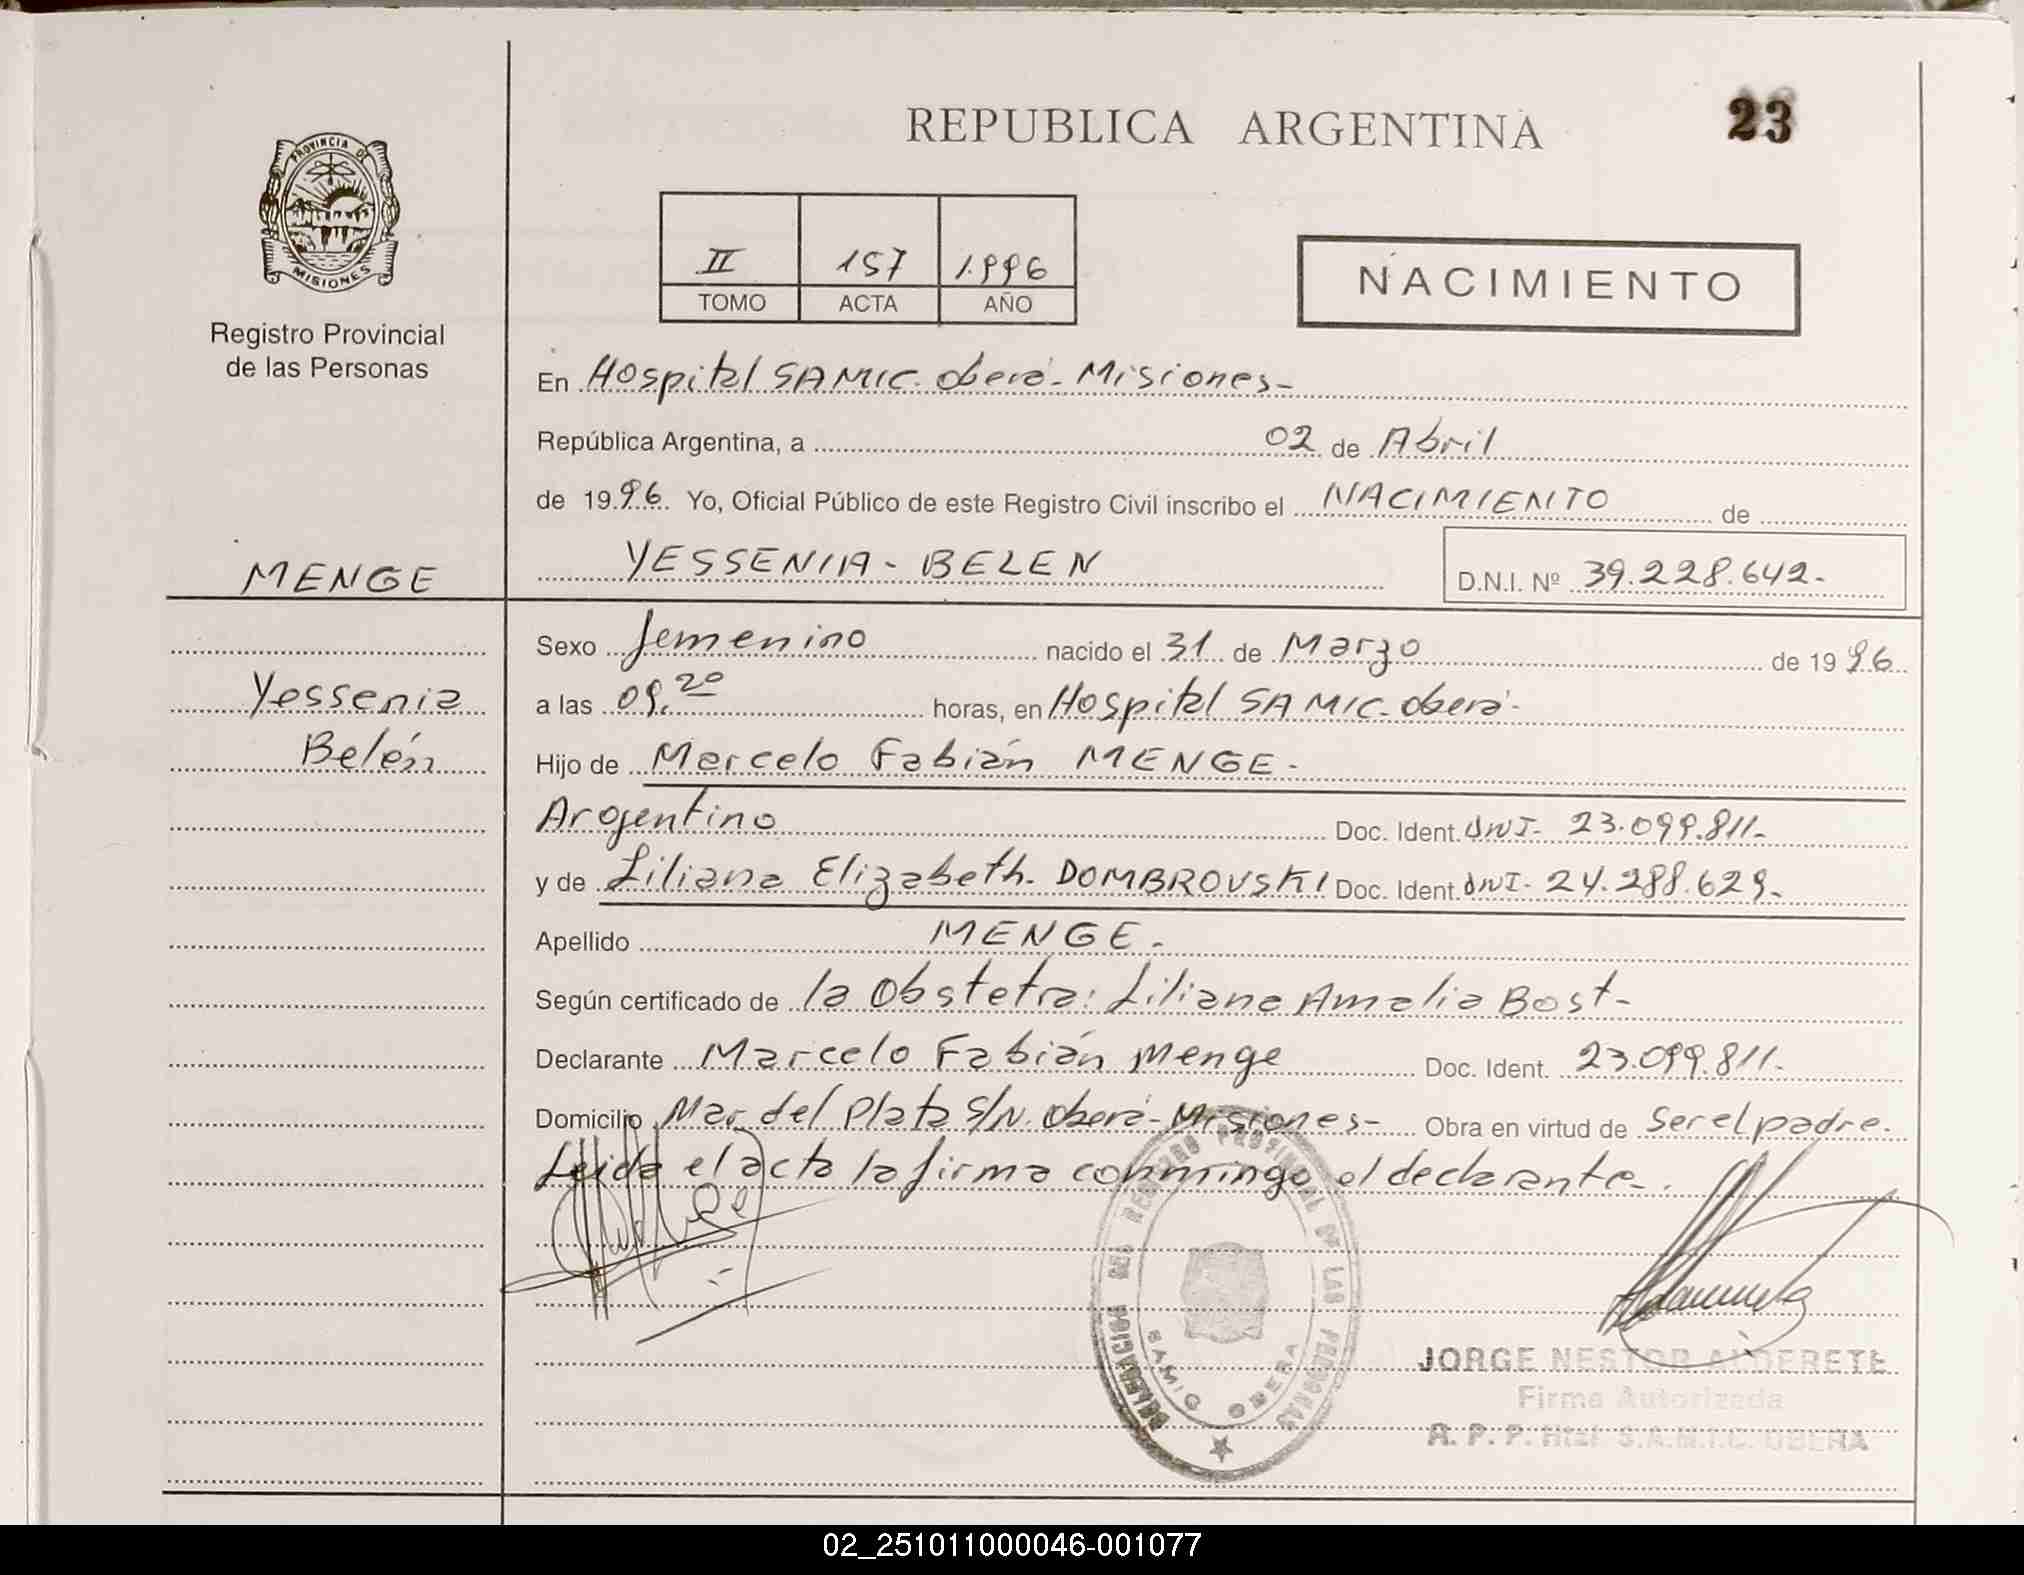 REPUBLICA ARGENTINA
23
PROVINCIA DE
MISIONES
Registro Provincial
de las Personas
II 157 1.996
TOMO ACTA AÑO
NACIMIENTO
En Hospital SAMIC. Oberá - Misiones -
República Argentina, a 02 de Abril
de 1996. Yo, Oficial Público de este Registro Civil inscribo el NACIMIENTO de
MENGE
YESSENIA - BELEN
D.N.I. Nº 39.228.642.-
Sexo femenino nacido el 31 de Marzo de 1996
Yessenia
a las 09,20 horas, en Hospital SAMIC. Oberá -
Belén
Hijo de Marcelo Fabián MENGE -
Argentino Doc. Ident. DNI - 23.099.811.-
y de Liliana Elizabeth. DOMBROVSKI Doc. Ident. DNI - 24.288.629.-
Apellido MENGE.-
Según certificado de la Obstetra: Liliana Amalia Bost -
Declarante Marcelo Fabián Menge Doc. Ident. 23.099.811.-
Domicilio Mar del Plata S/N. Oberá - Misiones - Obra en virtud de Ser el padre.-
Leida el acta la firma conmingo el declarante.-
DELEGACION DEL REGISTRO PROVINCIAL DE LAS PERSONAS
SAMIC OBERA
JORGE NESTOR ALDERETE
Firma Autorizada
R. P. P. Htal S.A.M.I.C. OBERA
02_251011000046-001077